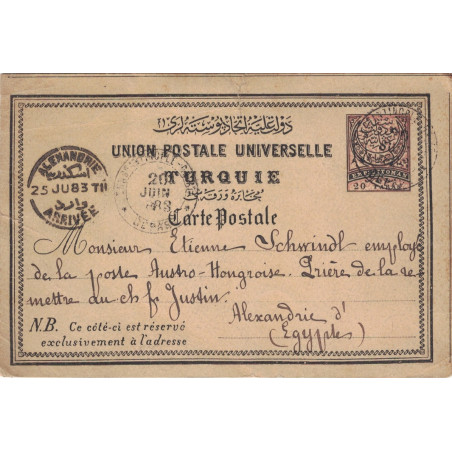 دولت عليه اتحاد پوسته لرى
UNION POSTALE UNIVERSELLE
TURQUIE
Carte Postale
20 PARAS
ALEXANDRIE
25 JU 83 TII
ARRIVÉE
20
JUIN
Monsieur Etienne Schwindl employé
de la poste Austro-Hongroise. Prière de la re
mettre au ch f Justin.
Alexandrie d'
(Egypte)
N.B. Ce côté-ci est réservé
exclusivement à l'adresse